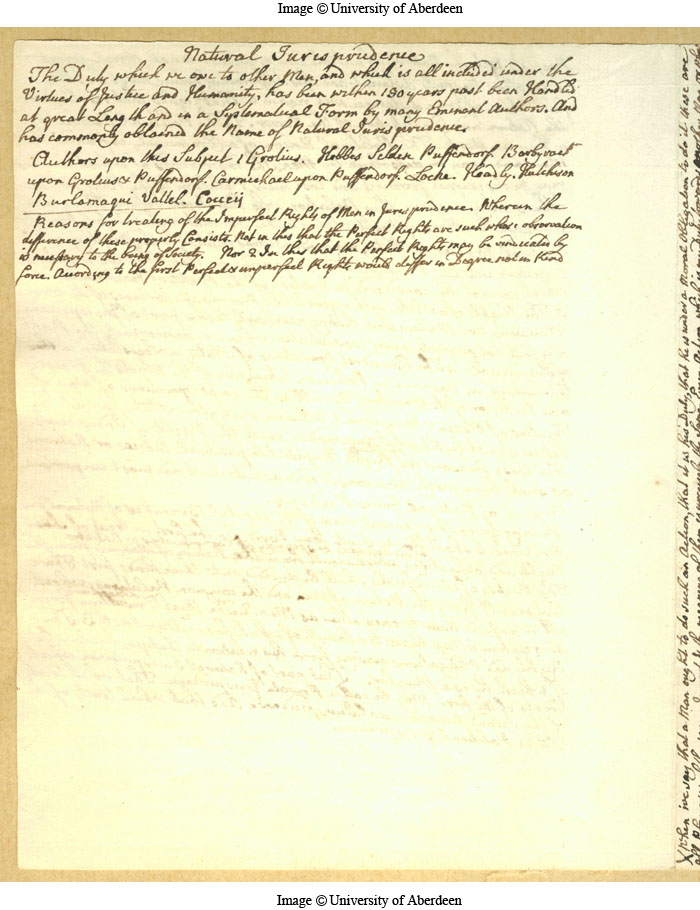 Image © University of Aberdeen
Natural Jurisprudence
The Duty which we owe to other Men, and which is all included under the
Virtues of Justice and Humanity, has been within 150 years past been Handled
at great Length and in a Systematical Form by many Eminent Authors. And
has commonly obtained the Name of Natural Jurisprudence.
Authors upon this Subject, Grotius. Hobbes Selden Puffendorf. Barbyrack
upon Grotius & Puffendorf. Carmichael upon Puffendorf. Locke. Hoadly. Hutchison
Burlamaqui Vattel. Cocceij
Reasons for treating of the Imperfect Rights of Men in Jurisprudence. Wherein the
difference of these properly Consists. Not in this that the Perfect Rights are such whose observation
is necessary to the being of Society. Nor 2 In this that the Perfect Rights may be vindicated by
force. According to the first Perfect & imperfect Rights would differ in Degree not in Kind
X When we say that a Man ought to do such an Action, that it is his Duty, that he is under a Moral Obligation to do it these are
Image © University of Aberdeen